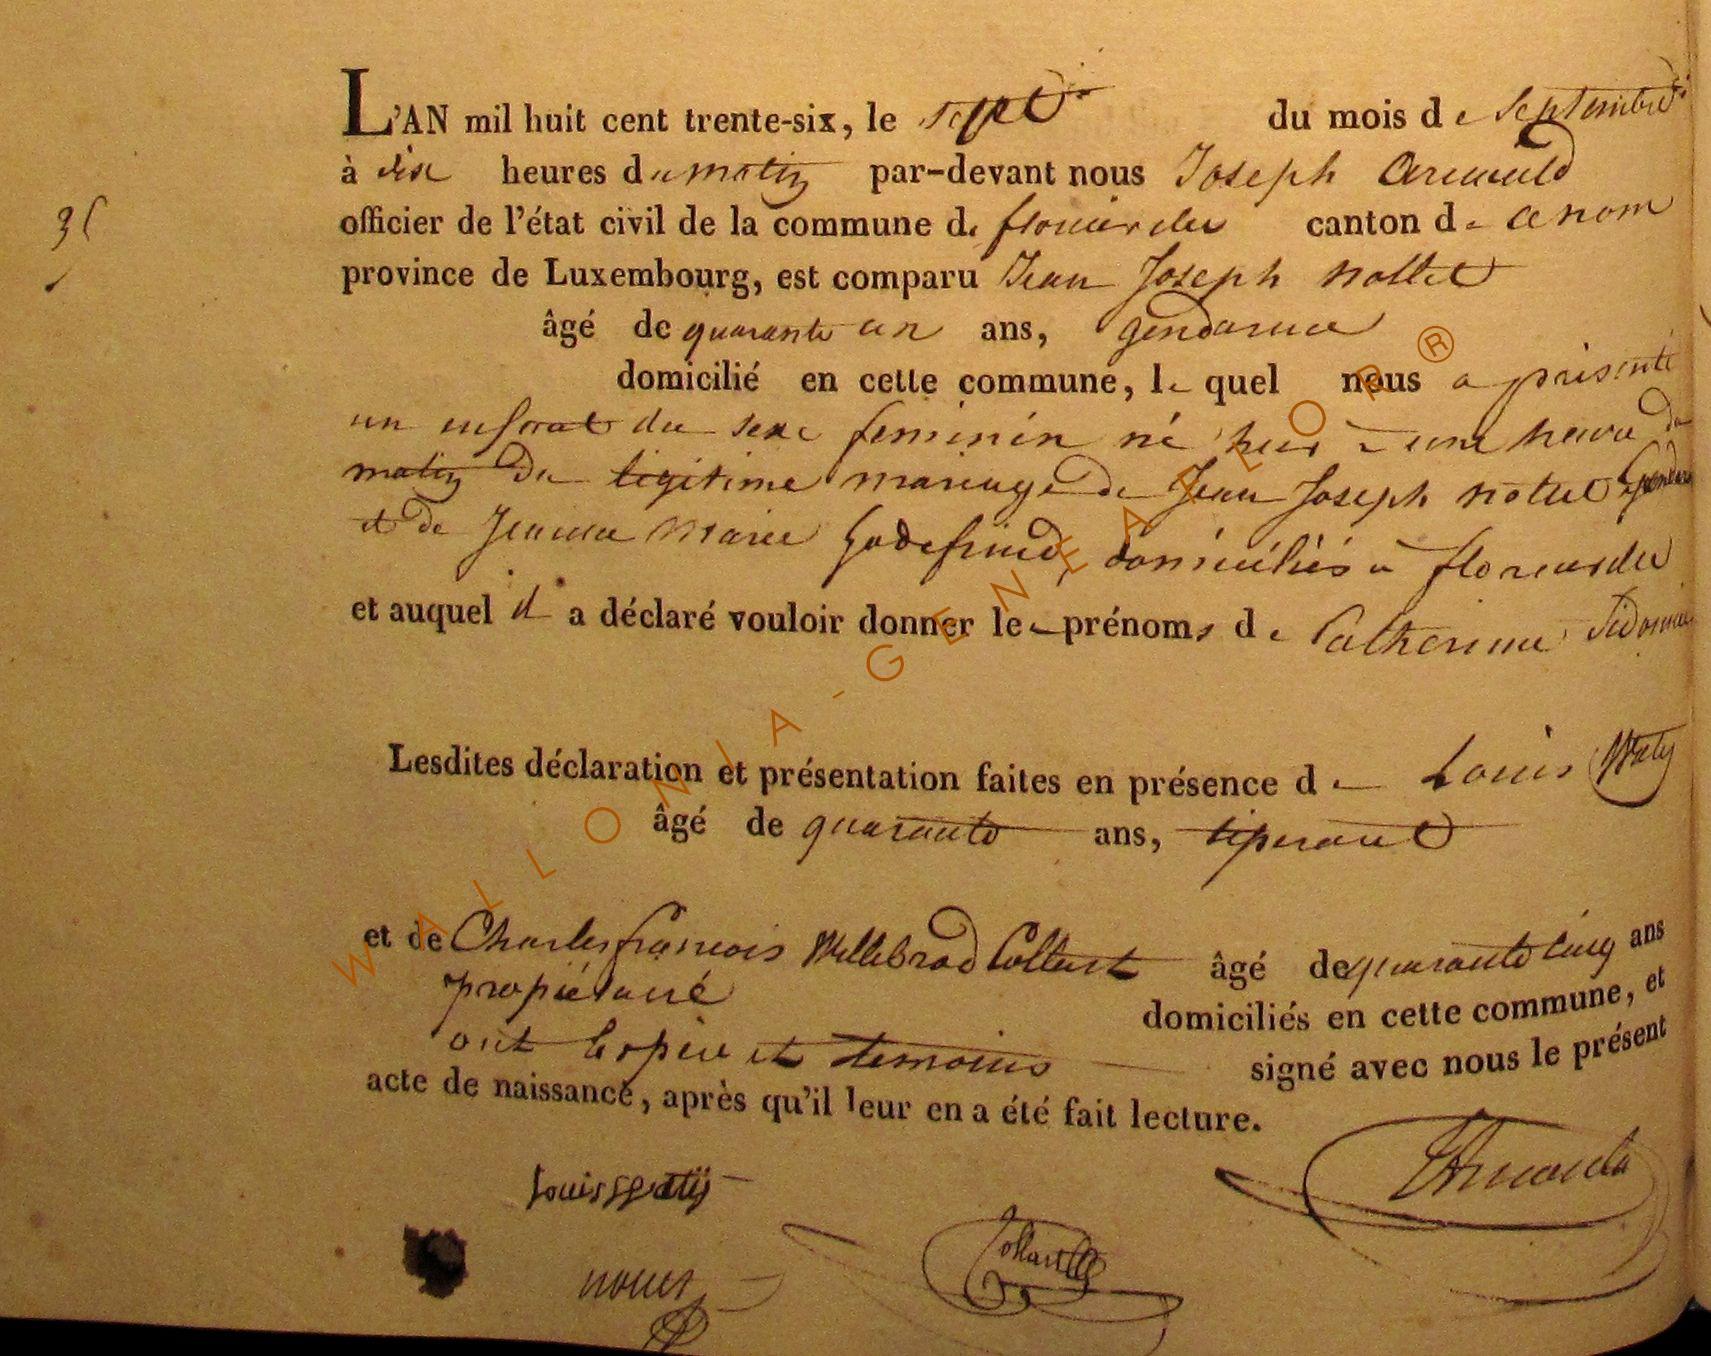 L'AN mil huit cent trente-six, le sept du mois de Septembre
à dix heures du matin par-devant nous Joseph
officier de l'état civil de la commune de canton de ce nom
35
province de Luxembourg, est comparu Jean Joseph nollet
âgé de quarante un ans, gendarme
domicilié en cette commune, le quel nous a présenté
un enfant du sexe feminin né à une heure du
matin du légitime mariage de Jean Joseph nollet
et de Jeanne Marie domiciliés à
et auquel il a déclaré vouloir donner les prénoms de Catherine Sidonie
Lesdites déclaration et présentation faites en présence de Louis Waty
âgé de quarante ans, tisserant
et de Charles francois Willebrod Collart âgé de quarante cinq ans
propriétaire domiciliés en cette commune, et
ont les père et temoins signé avec nous le présent
acte de naissance, après qu'il leur en a été fait lecture.
louis
Collart
WALLONIA-GENEALOR®